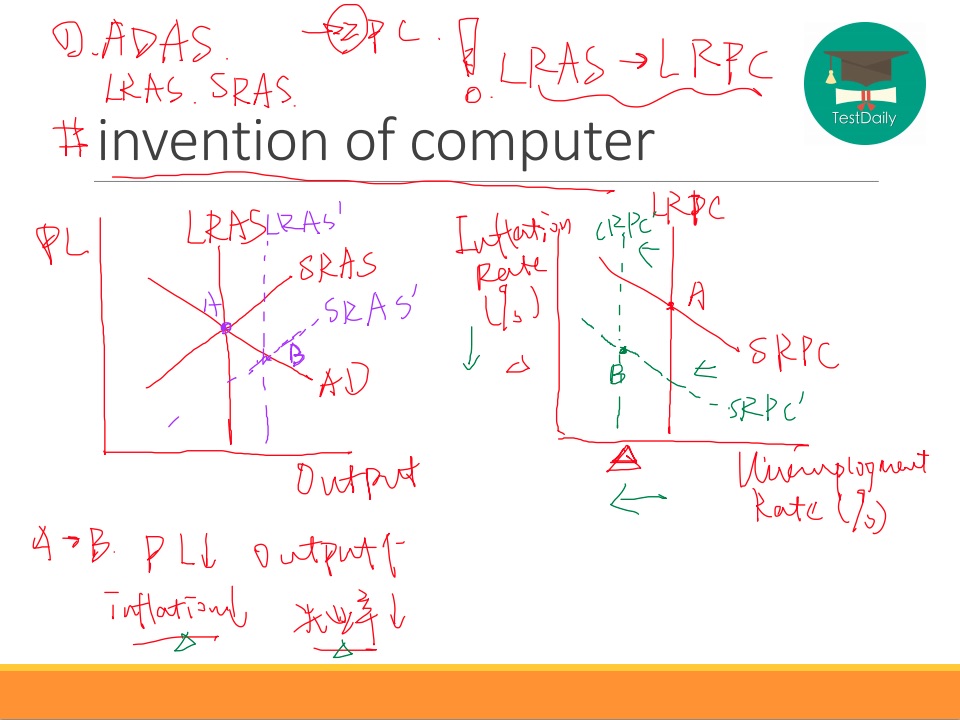 ①. ADAS. → ② PC. ! LRAS → LRPC
LRAS. SRAS.
TestDaily
# invention of computer
PL
LRAS
LRAS'
SRAS
SRAS'
A
B
AD
Output
Inflation
Rate
(%)
LRPC'
LRPC
A
B
SRPC
SRPC'
Unemployment
Rate (%)
A → B. PL↓ Output↑
inflation↓ 失业率↓